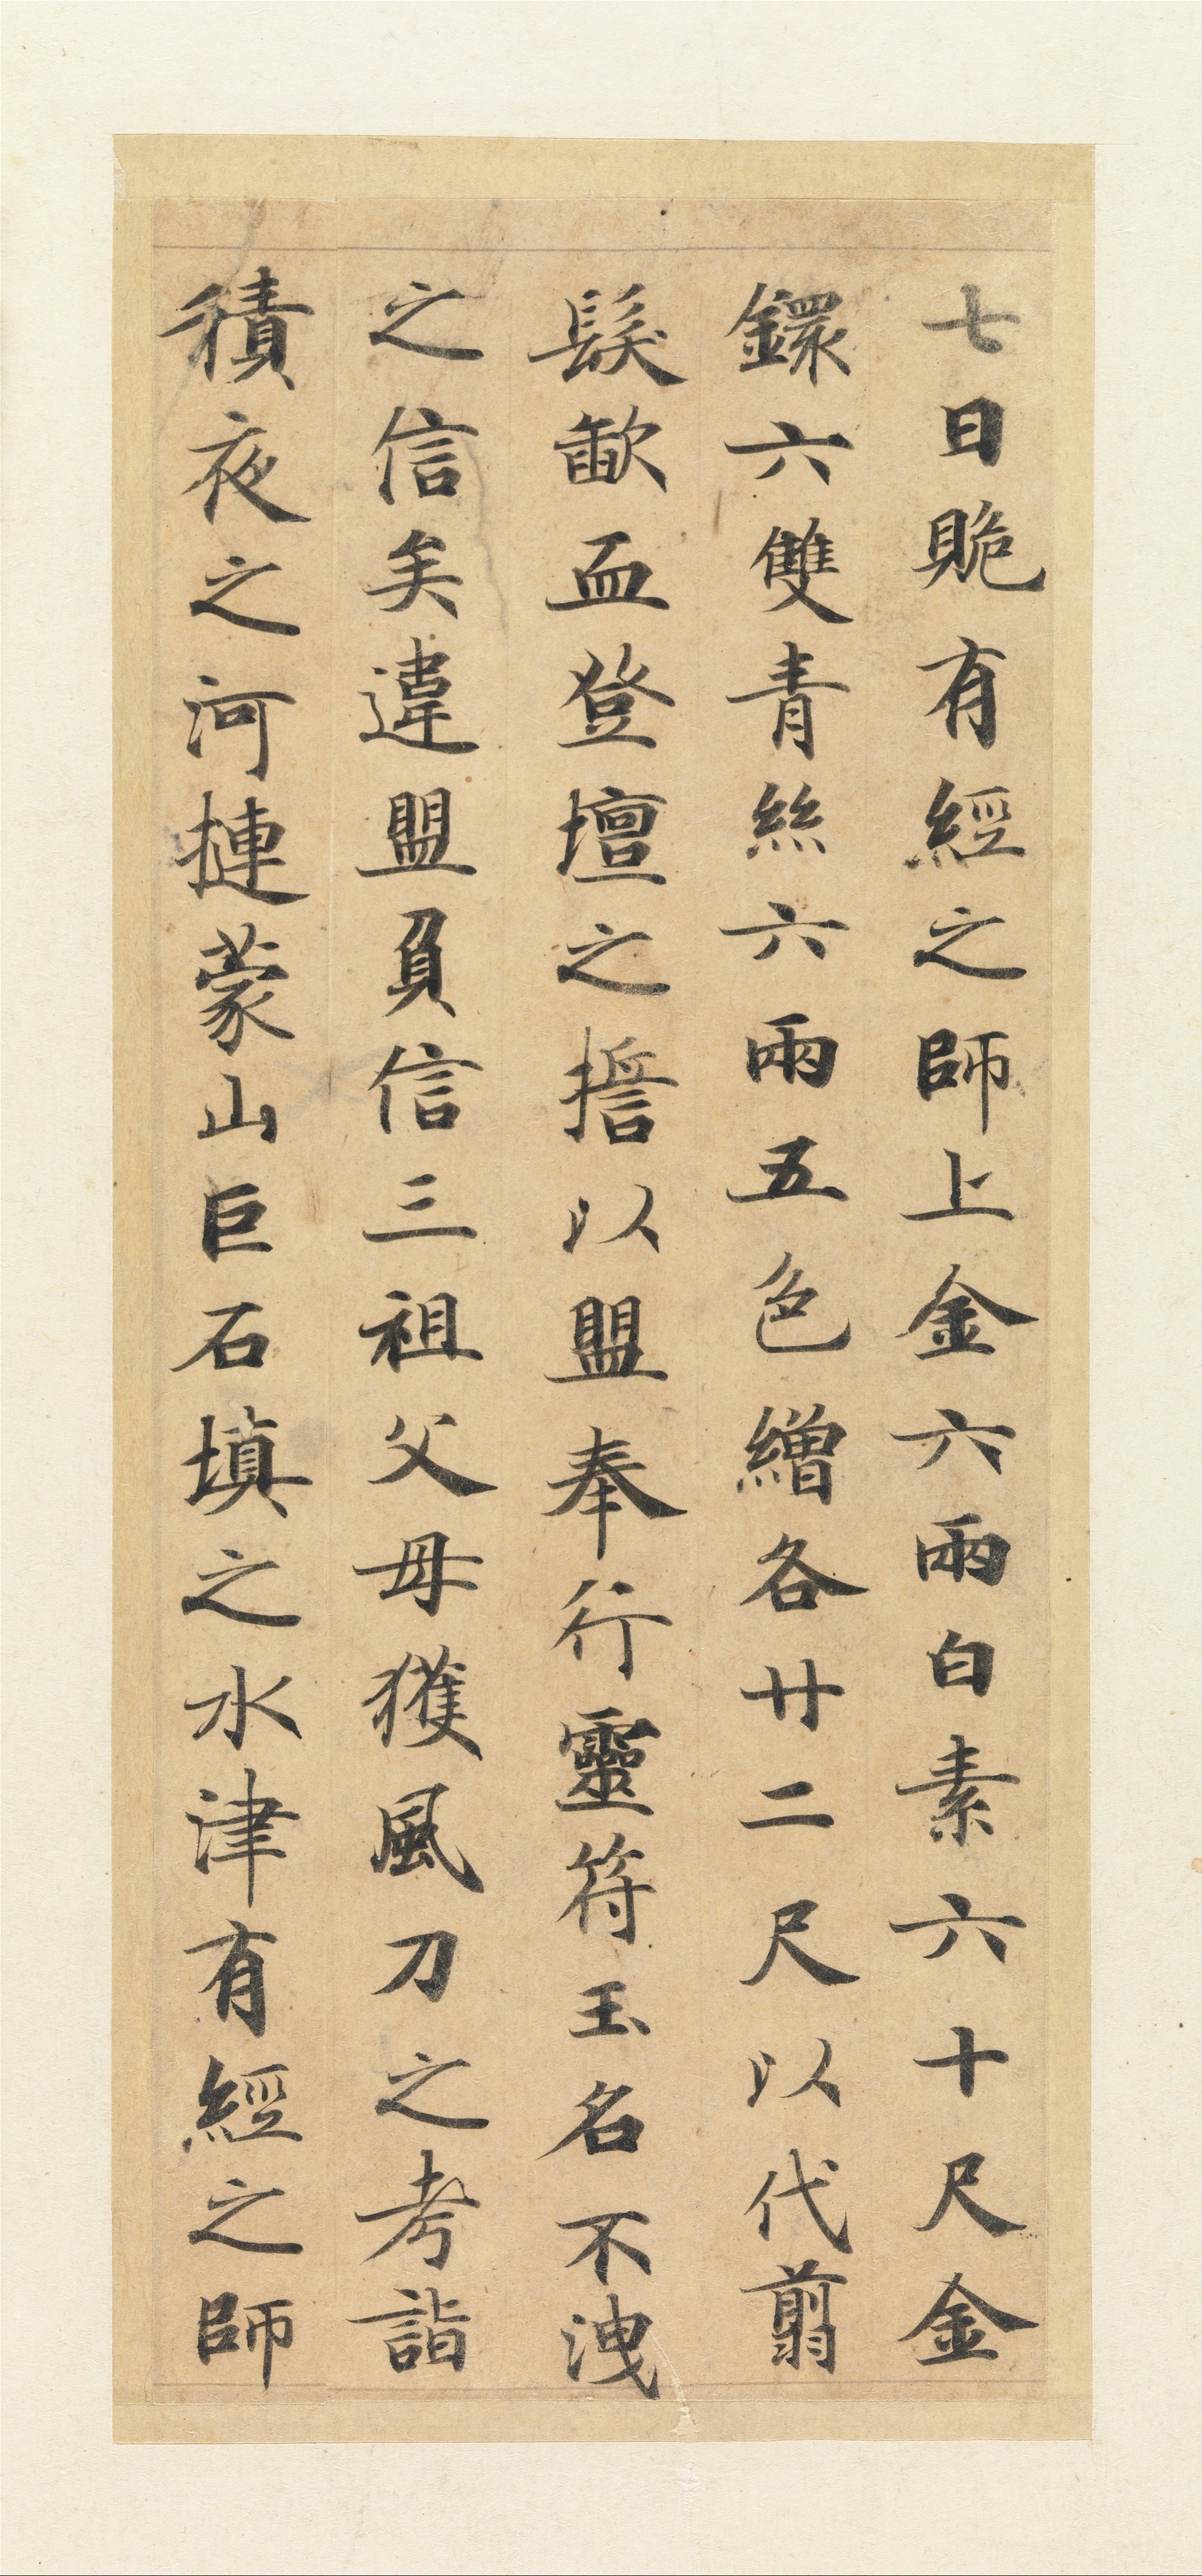 七日貹有經之師上金六兩白素六十尺金
鐶六雙青絲六兩五色繒各廿二尺以代翦
髮歃血登壇之誓以盟奉行靈符玉名不洩
之信矣違盟負信三祖父母獲風刀之考詣
積夜之河摙蒙山巨石填之水津有經之師